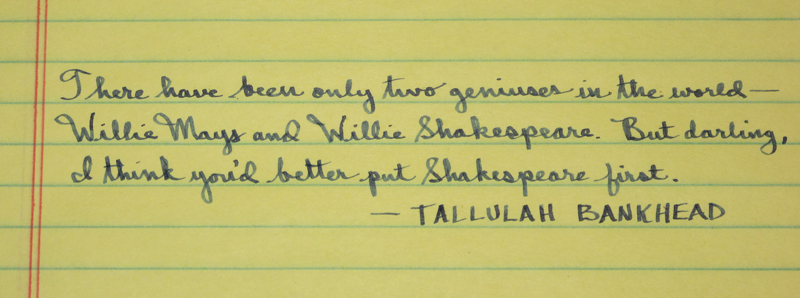 There have been only two geniuses in the world—
Willie Mays and Willie Shakespeare. But darling,
I think you'd better put Shakespeare first.
— TALLULAH BANKHEAD